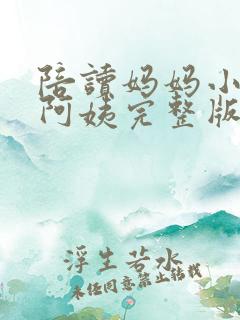 陪讀妈妈小
阿姨完整版
浮生若水
未经同意禁止转载